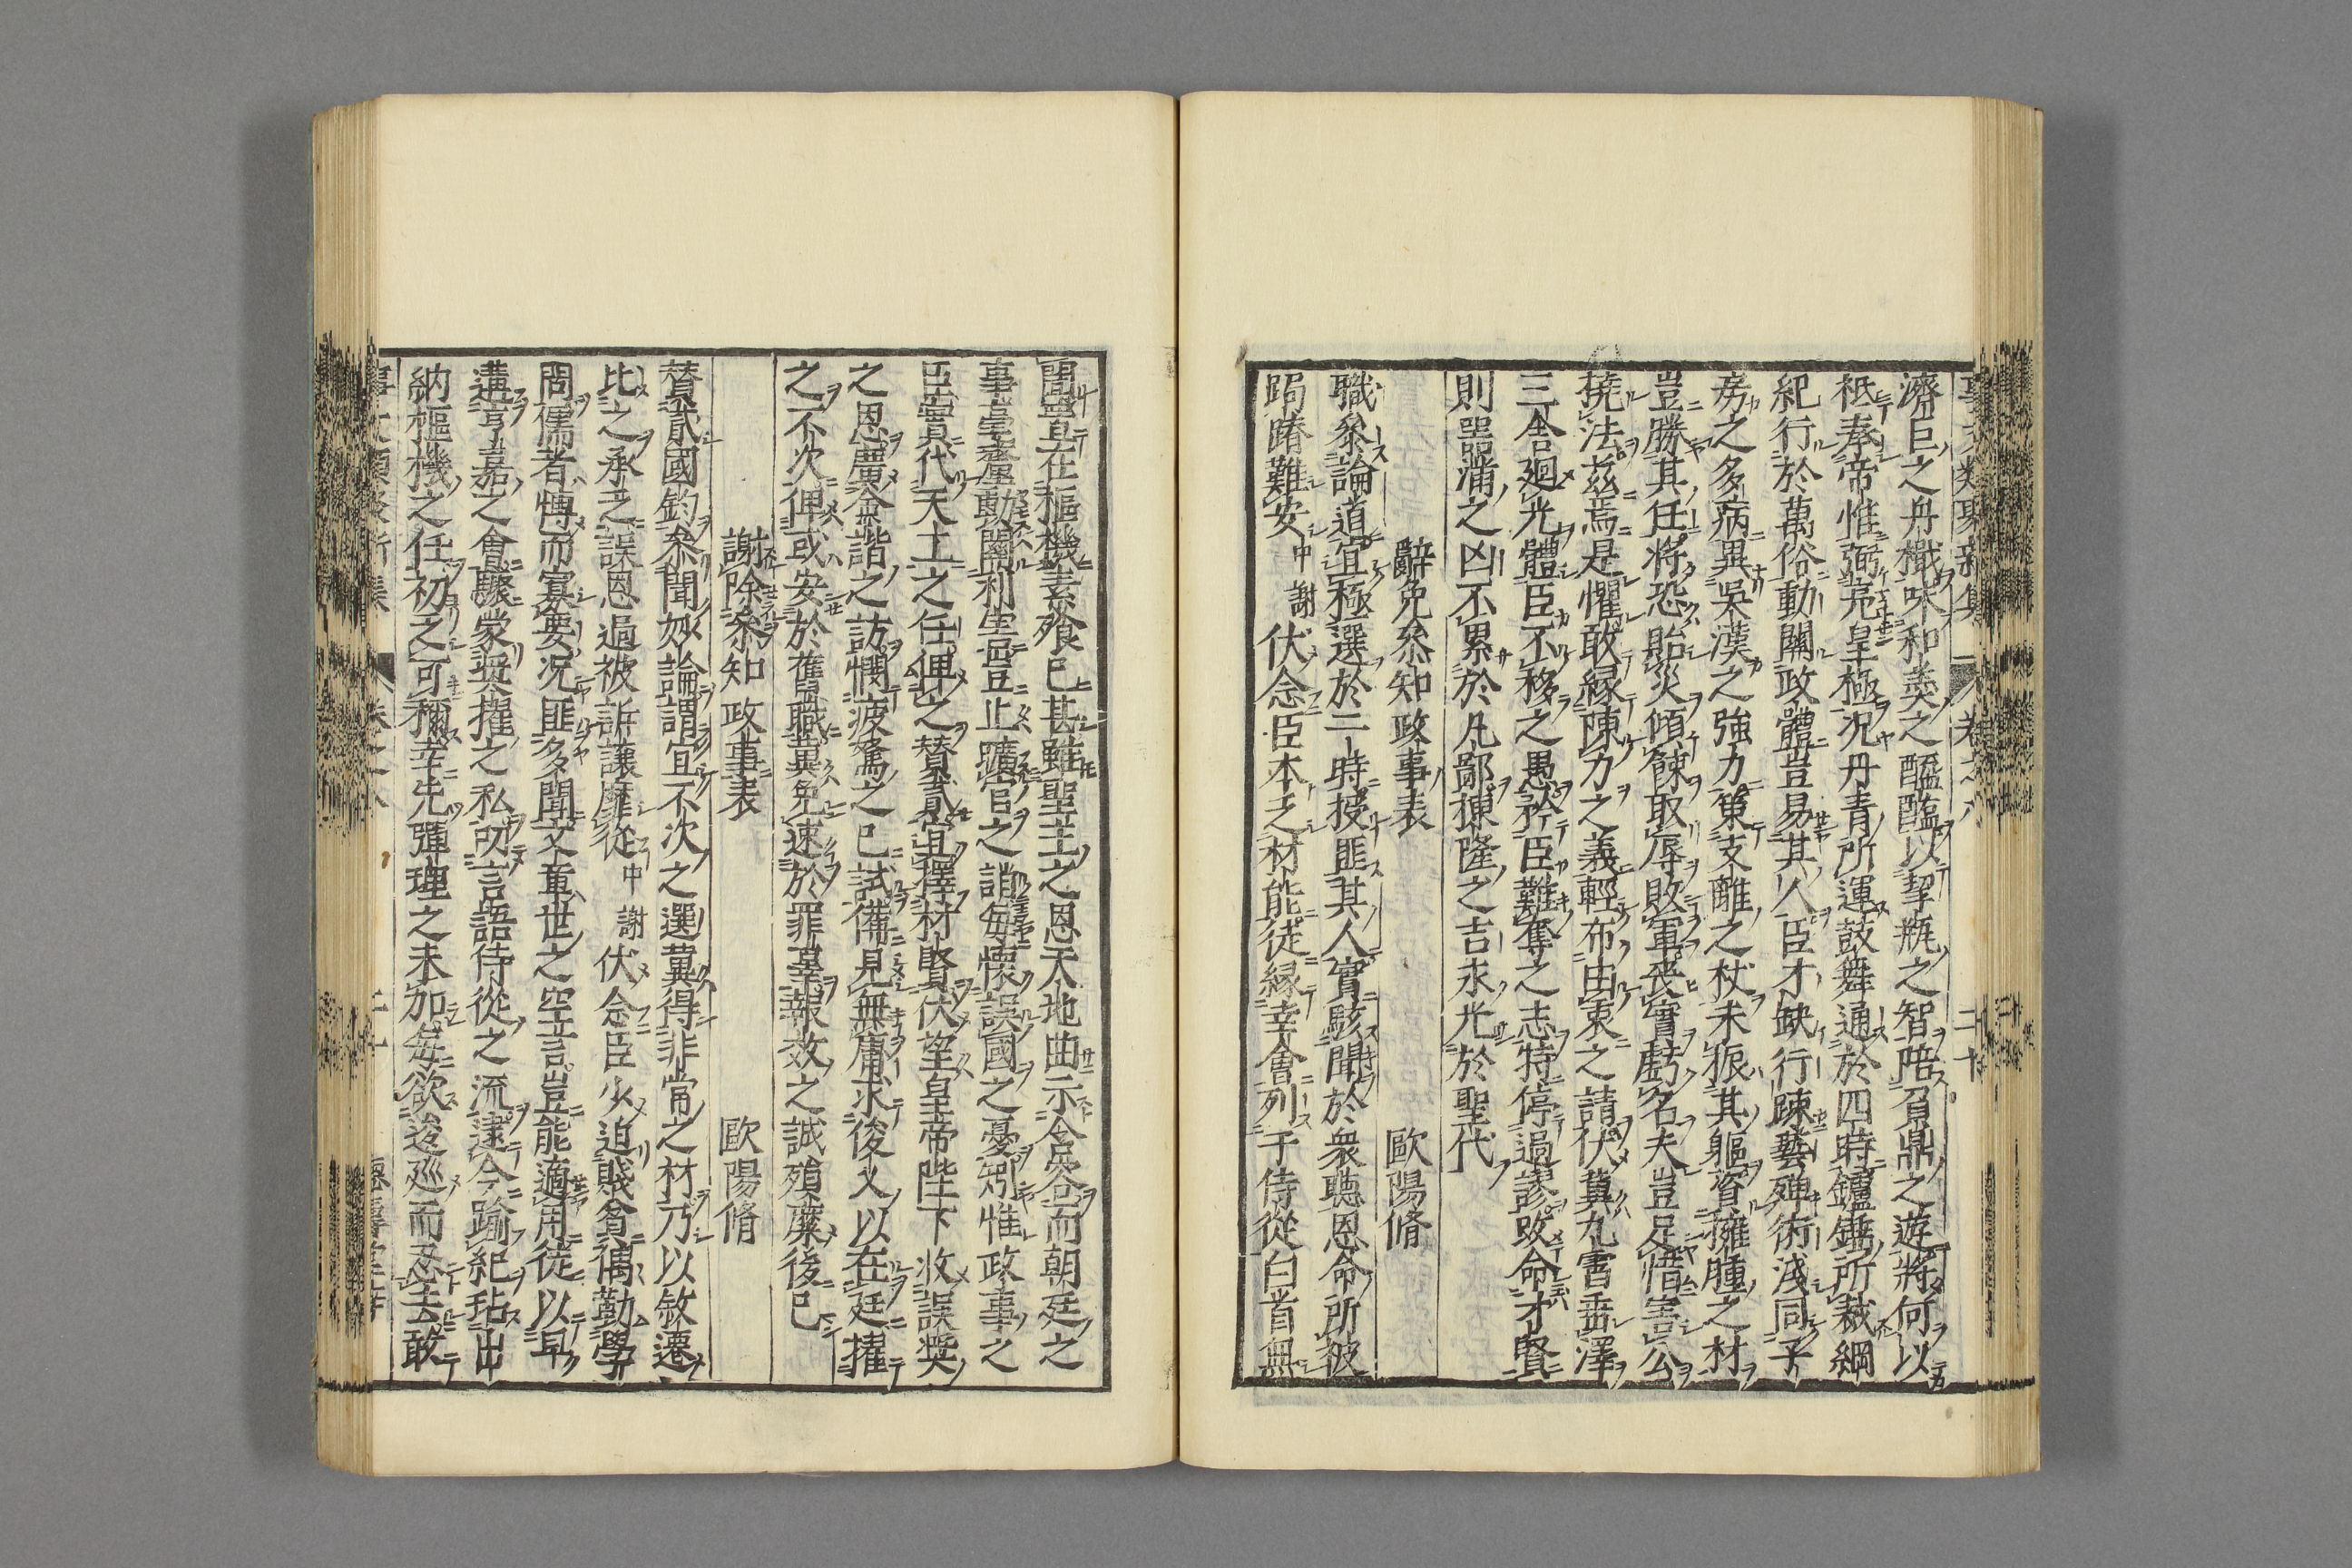 濟巨之丹檝味和羹之醯醢以挈瓶之智陪負鼎之遊將何以
祗奉帝惟弼亮皇極況丹青所運鼓舞通於四時鑪錘所裁綱
紀行於萬俗動關政體豈易其人臣才缺行踈藝殫術淺同子
房之多病異吳漢之強力策支離之杖未振其軀資擁腫之材
豈勝其任將恐貽災傾餗取辱敗軍喪實虧名夫豈足惜害公
撓法茲焉是懼敢緣陳力之義輕布由衷之請伏冀九霄垂澤
三舍廻光體臣不移之愚矜臣難奪之志特停過謬改命才賢
則噐滿之凶不累於凡鄙棟隆之吉永光於聖代
辭免叅知政事表 歐陽脩
職叅論道宜極選於一時授匪其人實駭聞於衆聽恩命所被
跼蹐難安中謝伏念臣本乏材能徒緣幸會列于侍從白首無
聞置在樞機素飡已甚雖聖主之恩天地曲示含容而朝廷之
事毫釐動關利害豈止曠官之誚每懷誤國之憂矧惟政事之
臣實代天工之任俾之贊貳宜擇材賢伏望皇帝陛下收誤奬
之恩廣僉諧之訪憫疲駑之已試備見無庸求俊乂以在廷擢
之不次俾或安於舊職冀免速於罪辜報效之誠殞糜後已
謝除叅知政事表 歐陽脩
贊貳國鈞叅聞妙論謂宜不次之選冀得非常之材乃以敘遷
比之承乏誤恩過被訴讓靡從中謝伏念臣少迫賤貧偶勤學
問儒者愽而寡要況匪多聞文章世之空言豈能適用徒以早
遘亨嘉之會驟蒙奬擢之私初言語侍從之流逮今踰紀玷出
納樞機之任初之可稱幸先彈理之未加每欲逡廵而丞去敢